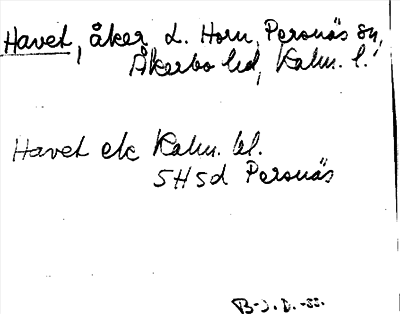 Havet, åker, L. Horn, Persnäs sn,
Åkerbo hd, Kalm. l.
Havet ek Kalm. bl.
5H5d Persnäs
B-J. D. -55.